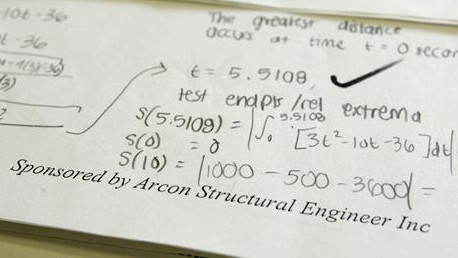 -10t-36
The greatest distance
occurs at time t = 0
t-36
t = 5.5108,
test endpts /rel extrema
S(5.5108) = |∫₀^5.5108 [3t²-10t-36]dt|
S(0) = 0
S(10) = |1000 - 500 - 3600| =
Sponsored by Arcon Structural Engineer Inc